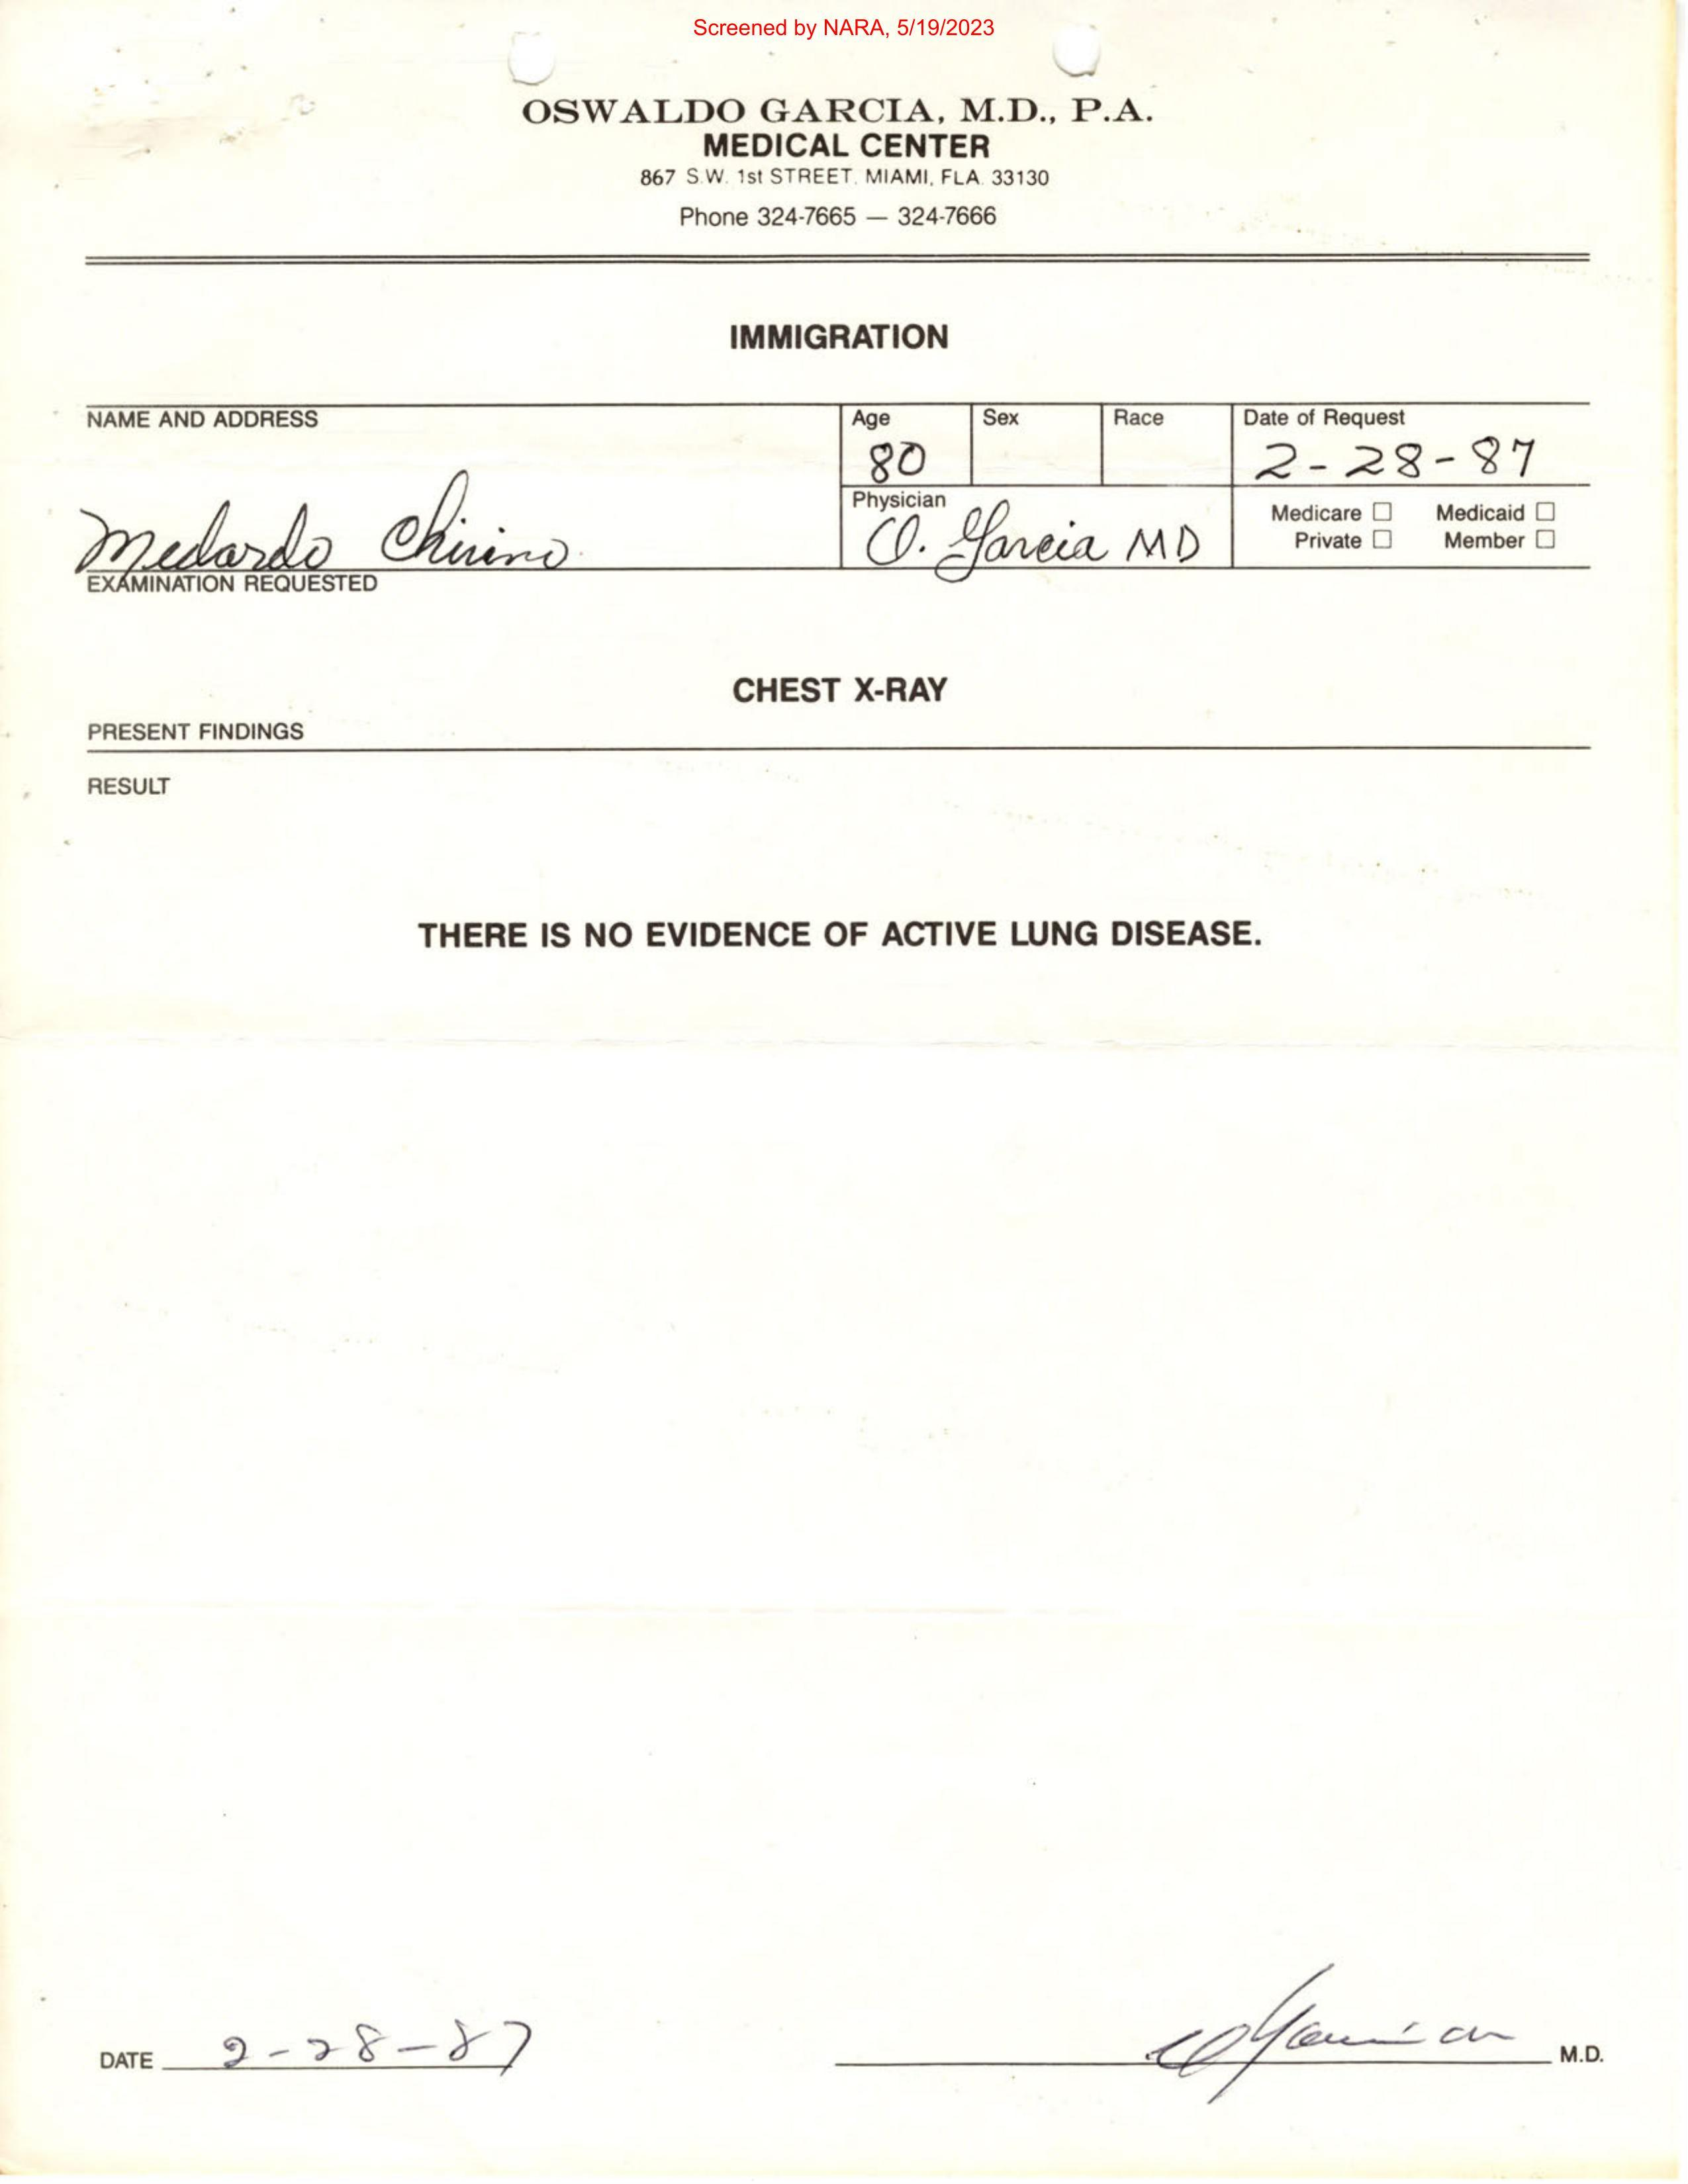 Screened by NARA, 5/19/2023
OSWALDO GARCIA, M.D., P.A.
MEDICAL CENTER
867 S.W. 1st STREET, MIAMI, FLA. 33130
Phone 324-7665 — 324-7666
IMMIGRATION
NAME AND ADDRESS Age Sex Race Date of Request
80 2-28-87
Medardo Chirino Physician O. Garcia MD
Medicare ☐ Medicaid ☐
Private ☐ Member ☐
EXAMINATION REQUESTED
CHEST X-RAY
PRESENT FINDINGS
RESULT
THERE IS NO EVIDENCE OF ACTIVE LUNG DISEASE.
DATE 2-28-87 M.D.